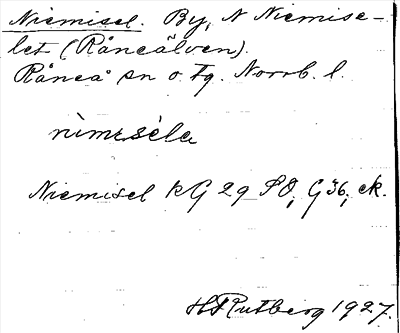 Niemisel. By, N Niemise-
let (Råneälven).
Råneå sn o. tg. Norrb. l.
nìmısèla
Niemisel kG 29 SO, G 36, ek.
H Rutberg 1927.